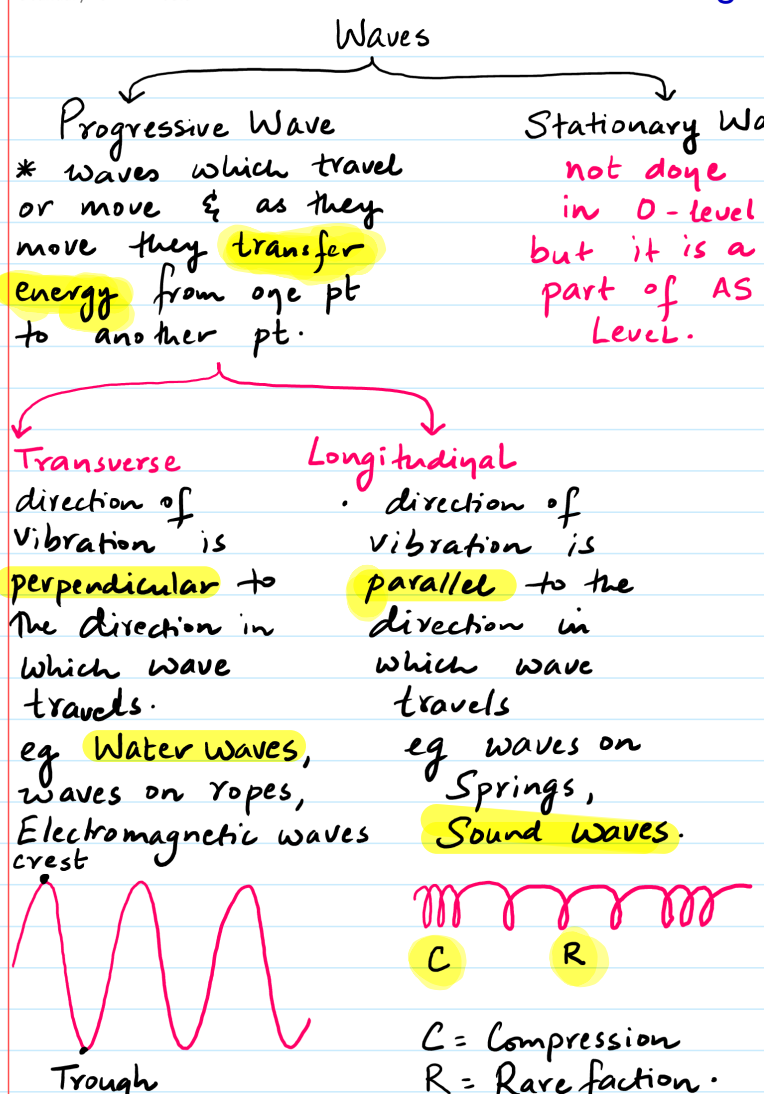 Waves
Progressive Wave
* waves which travel
or move & as they
move they transfer
energy from one pt
to another pt.
Stationary Wa
not done
in O-level
but it is a
part of AS
Level.
Transverse
direction of
vibration is
perpendicular to
the direction in
which wave
travels.
eg Water waves,
waves on ropes,
Electromagnetic waves
crest
Trough
Longitudinal
. direction of
vibration is
parallel to the
direction in
which wave
travels
eg waves on
Springs,
Sound waves.
C
R
C = Compression
R = Rarefaction.